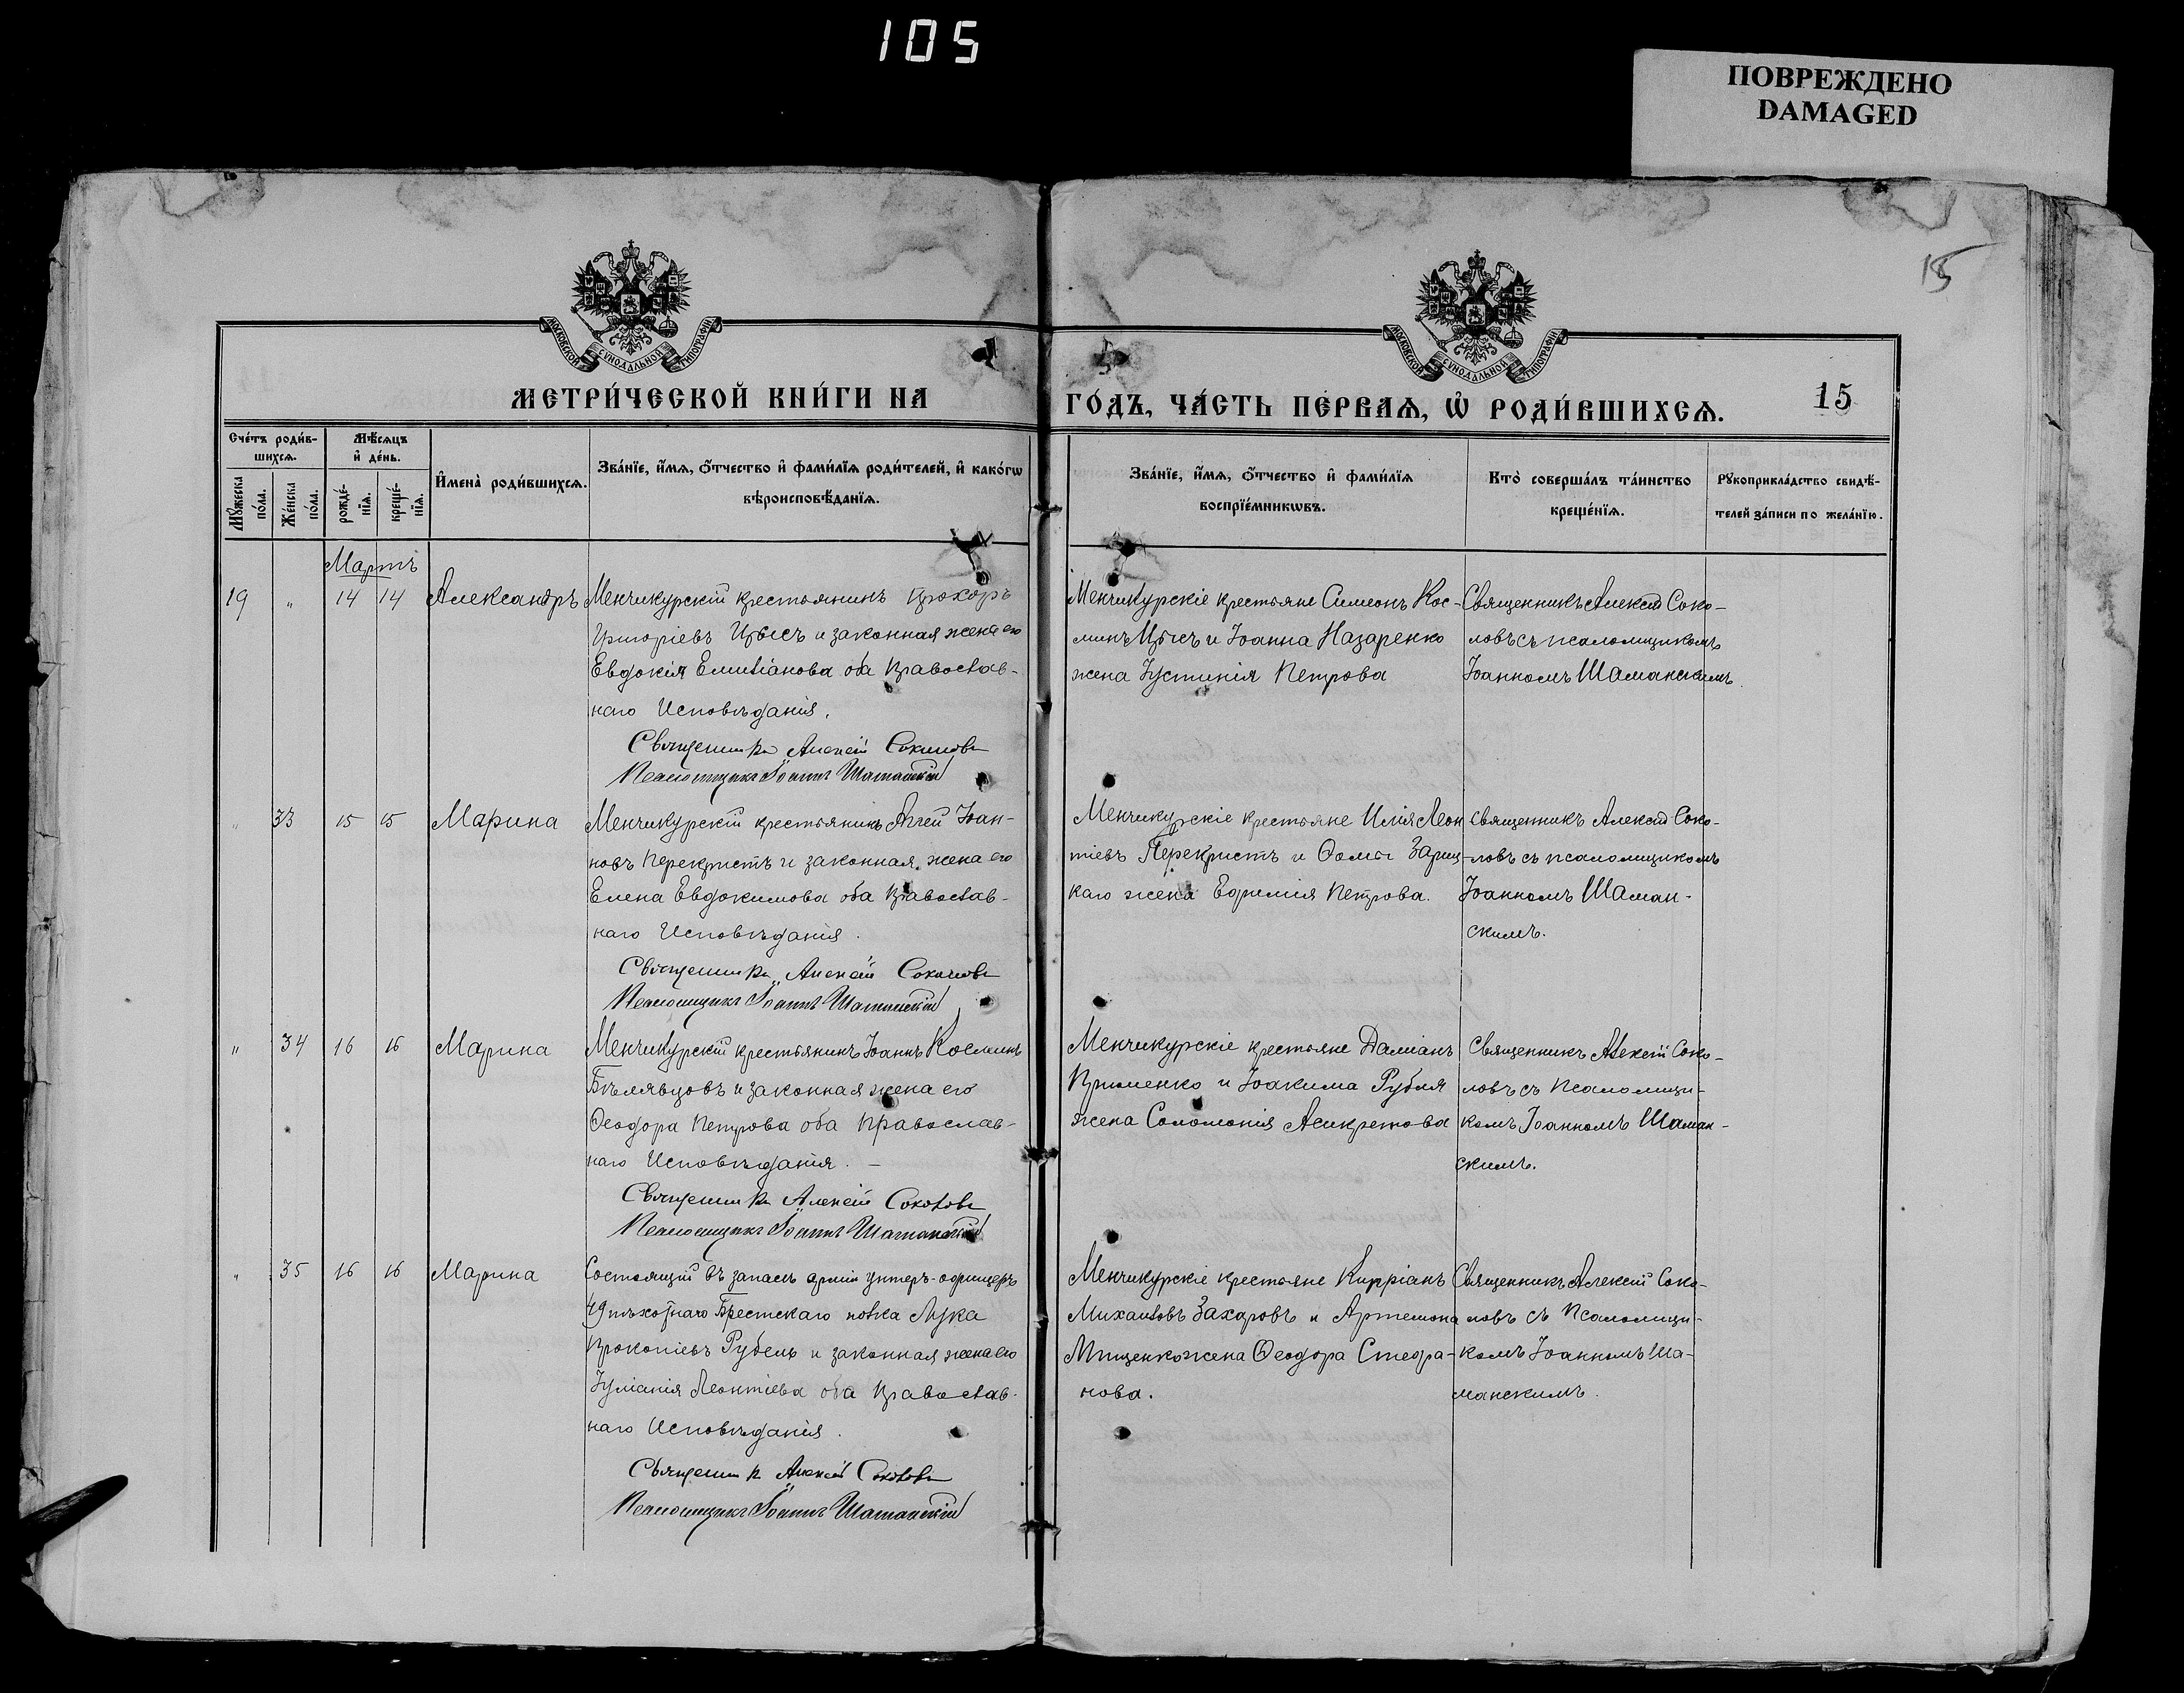 105
ПОВРЕЖДЕНО
DAMAGED
15
МОСКОВСКОЙ СѴНОДАЛЬНОЙ ТИПОГРАФІИ
МОСКОВСКОЙ СѴНОДАЛЬНОЙ ТИПОГРАФІИ
МЕТРИ́ЧЕСКОЙ КНИ́ГИ НА ГО́ДЪ, ЧА́СТЬ ПЕ́РВАѦ, Ѡ҆ РОДИ́ВШИХСѦ. 15
Сче́тъ роди́в-
шихсѧ.
Мꙋ́жеска
по́ла.
Же́нска
по́ла.
Мѣ́сѧцъ
и҆ де́нь.
рожде́-
нїѧ.
креще́-
нїѧ.
И҆мена̀ роди́вшихсѧ.
Зва́нїе, и҆́мѧ, ѻ҆́тчество и҆ фами́лїѧ роди́телей, и҆ како́гѡ
вѣроисповѣ́данїѧ.
Зва́нїе, и҆́мѧ, ѻ҆́тчество и҆ фами́лїѧ
воспрїе́мникѡвъ.
Кто̀ соверша́лъ та́инство
креще́нїѧ.
Рꙋкоприкла́дство свидѣ́-
телей за́писи по жела́нїю.
Мартъ
19 " 14 14 Александръ
Менчикурскій крестьянинъ Прохоръ
Григоріевъ Цысъ и законная жена его
Евдокія Емиліанова оба православ-
наго Исповѣданія.
Священникъ Алексій Соколовъ
Псаломщикъ Іоаннъ Шаманскій
Менчикурскіе крестьяне Симеонъ Кос-
минъ Цысъ и Іоанна Назаренко
жена Іустинія Петрова
Священникъ Алексій Соко-
ловъ съ псаломщикомъ
Іоанномъ Шаманскимъ.
" 33 15 15 Марина
Менчикурскій крестьянинъ Аггей Іоан-
новъ Перекристъ и законная жена его
Елена Евдокимова оба православ-
наго Исповѣданія.
Священникъ Алексій Соколовъ
Псаломщикъ Іоаннъ Шаманскій
Менчикурскіе крестьяне Илія Леон
тіевъ Перекристъ и Ѳомы Зариц-
каго жена Евфимія Петрова.
Священникъ Алексій Соко-
ловъ съ псаломщикомъ
Іоанномъ Шаман-
скимъ.
" 34 16 16 Марина
Менчикурскій крестьянинъ Іоаннъ Косминъ
Бѣлявцовъ и законная жена его
Ѳеодора Петрова оба православ-
наго Исповѣданія. -
Священникъ Алексій Соколовъ
Псаломщикъ Іоаннъ Шаманскій
Менчикурскіе крестьяне Даміанъ
Клименко и Іоакима Рубля
жена Соломонія Асикретова
Священникъ Алексій Соко-
ловъ съ Псаломщи-
комъ Іоанномъ Шаман-
скимъ.
" 35 16 16 Марина
Состоящій въ запасѣ арміи унтеръ-офицеръ
49 пѣхотнаго Брестскаго полка Лука
Прокопіевъ Рубель и законная жена его
Іуліанія Леонтіева оба православ-
наго Исповѣданія.
Священникъ Алексій Соколовъ
Псаломщикъ Іоаннъ Шаманскій
Менчикурскіе крестьяне Кипріанъ
Михаиловъ Захаровъ и Артемона
Мищенко жена Ѳеодора Стефа-
нова.
Священникъ Алексій Соко-
ловъ съ Псаломщи-
комъ Іоанномъ Ша-
манскимъ.